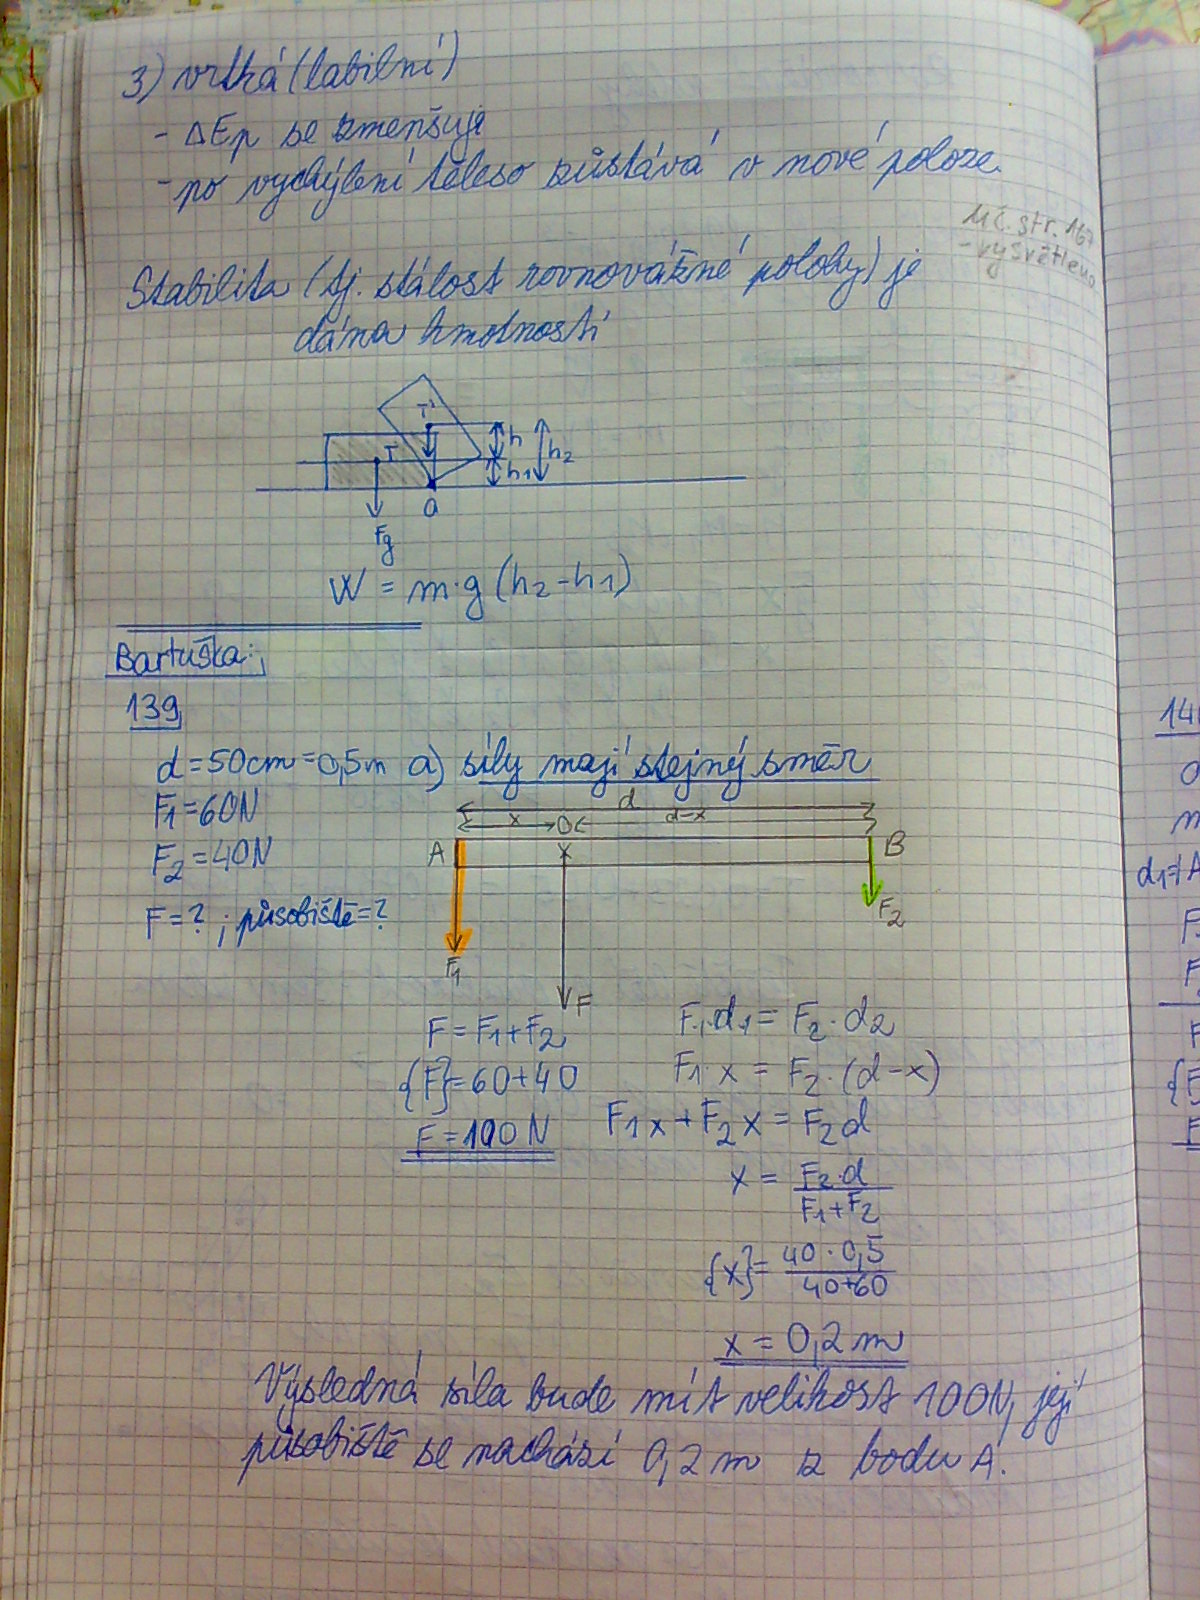 3) vrtká (labilní)
- ΔEp se zmenšuje
- po vychýlení těleso zůstává v nové poloze.
uč. str. 167
- vysvětleno
Stabilita (tj. stálost rovnovážné polohy) je
dána hmotností
T'
T
h
h2
h1
O
Fg
W = m·g (h2-h1)
Bartuška:
139
d = 50cm = 0,5m a) síly mají stejný směr
F1 = 60N
F2 = 40N
F = ? ; působiště = ?
d
x
O
d-x
A
B
F2
F1
F
F = F1 + F2
{F} = 60 + 40
F = 100 N
F1·d1 = F2·d2
F1·x = F2·(d-x)
F1x + F2x = F2d
x = F2·d
F1+F2
{x} = 40·0,5
40+60
x = 0,2 m
Výsledná síla bude mít velikost 100N, její
působiště se nachází 0,2 m z bodu A.